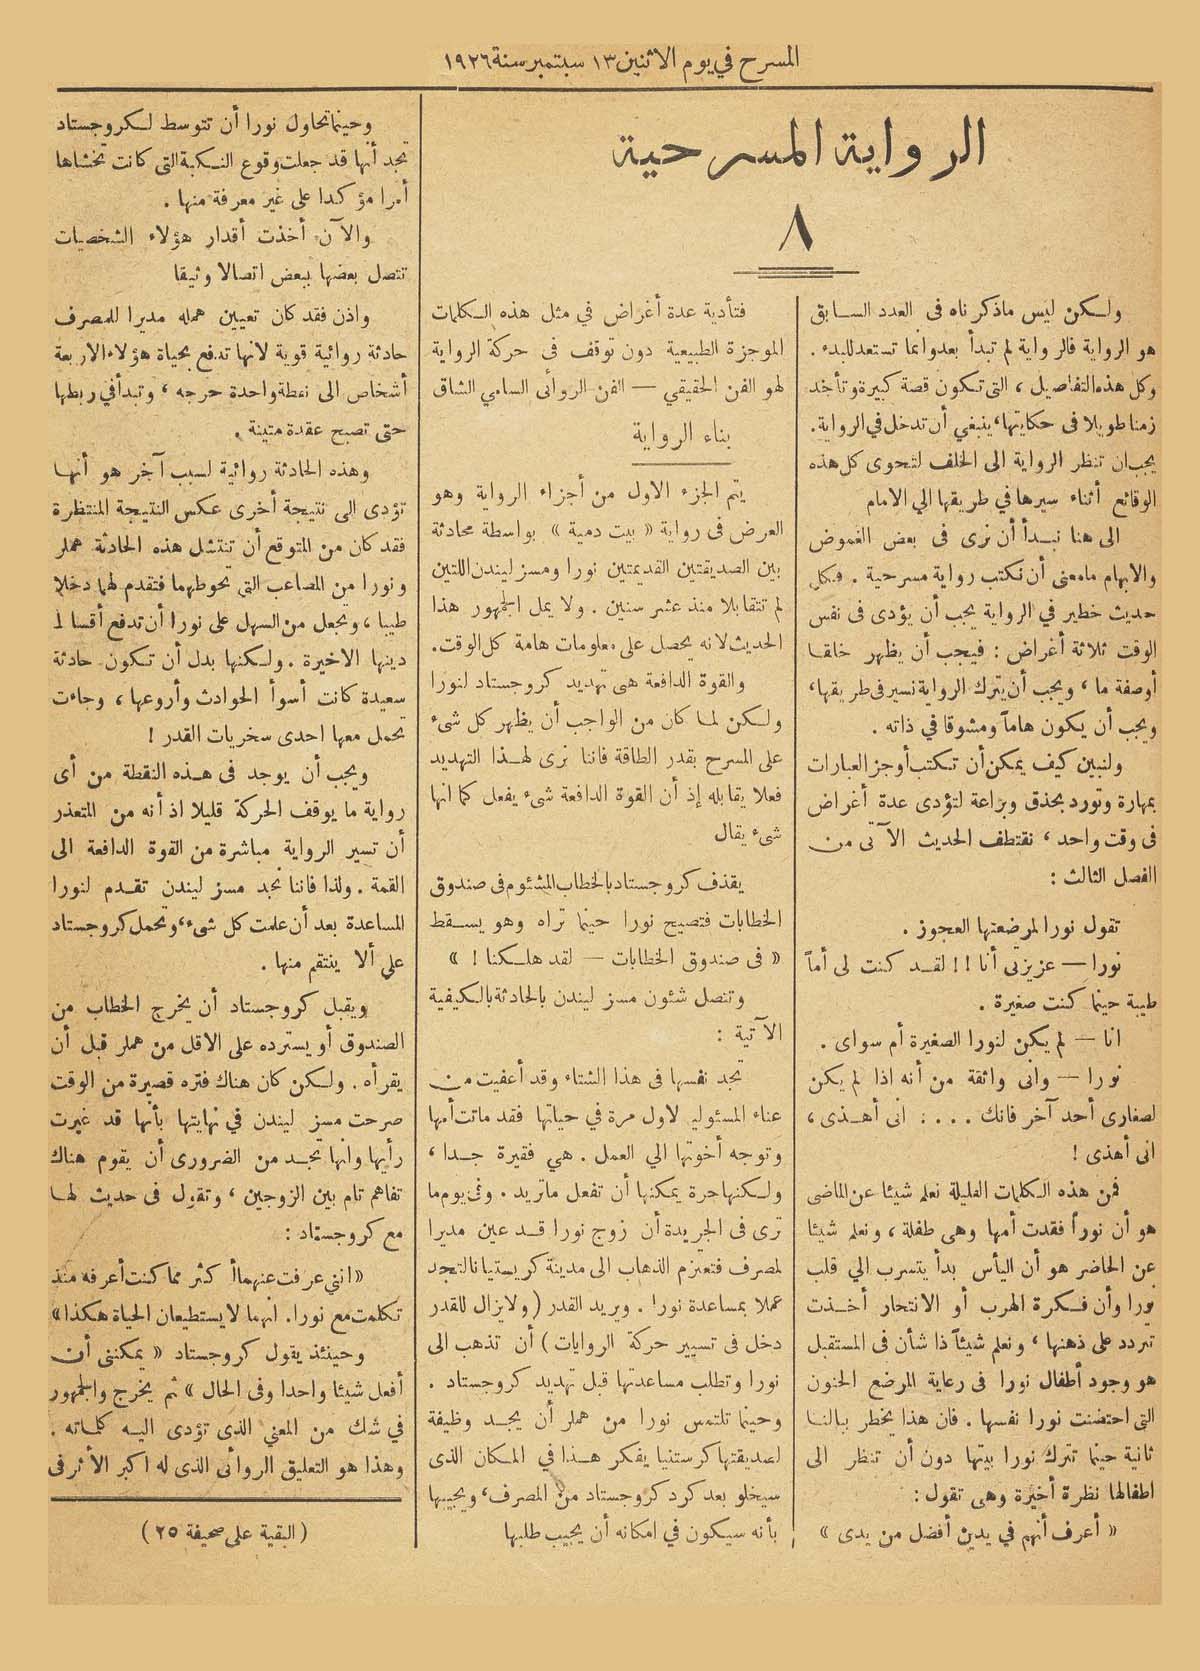 المسرح في يوم الاثنين ١٣ سبتمبر سنة ١٩٢٦
الرواية المسرحية
٨
ولكن ليس ماذكرناه فى العدد السابق
هو الرواية فالرواية لم تبدأ بعد وانما تستعد للبدء .
وكل هذه التفاصيل ، التى تكون قصة كبيرة وتأخذ
زمنا طويلا فى حكايتها، ينبغي أن تدخل في الرواية.
يجب ان تنظر الرواية الى الخلف لتحوى كل هذه
الوقائع أثناء سيرها في طريقها الي الامام
الى هنا نبدأ أن نرى فى بعض الغموض
والابهام مامعنى أن نكتب رواية مسرحية . فكل
حديث خطير في الرواية يجب أن يؤدى فى نفس
الوقت ثلاثة أغراض : فيجب أن يظهر خلقا
أوصفة ما ، ويجب أن يترك الرواية تسير فى طريقها،
ويجب أن يكون هاماً ومشوقا في ذاته .
ولنبين كيف يمكن أن تكتب أوجز العبارات
بمهارة وتورد بحذق وبراعة لتؤدى عدة أغراض
فى وقت واحد ، نقتطف الحديث الآتى من
الفصل الثالث :
تقول نورا لمرضعتها العجوز .
نورا — عزيزتى أنا !! لقد كنت لى أماً
طيبة حينما كنت صغيرة .
انا — لم يكن لنورا الصغيرة أم سواى .
نورا — وانى واثقة من أنه اذا لم يكن
لصغارى أحد آخر فانك .... انى أهذى ،
انى أهذى !
فمن هذه الكلمات القليلة نعلم شيئا عن الماضى
هو أن نوراً فقدت أمها وهى طفلة ، ونعلم شيئا
عن الحاضر هو أن اليأس بدأ يتسرب الي قلب
نورا وأن فكرة الهرب أو الانتحار أخذت
تبردد على ذهنها ، ونعلم شيئاً ذا شأن فى المستقبل
هو وجود أطفال نورا فى رعاية المرضع الحنون
التى احتضنت نورا نفسها . فان هذا يخطر ببالنا
ثانية حينما تترك نورا بيتها دون أن تنظر الى
اطفالها نظرة أخيرة وهى تقول :
« أعرف أنهم في يدين أفضل من يدى »
فتأدية عدة أغراض في مثل هذه الكلمات
الموجزة الطبيعية دون توقف فى حركة الرواية
لهو الفن الحقيقي — الفن الروائى السامي الشاق
بناء الرواية
يتم الجزء الاول من أجزاء الرواية وهو
العرض فى رواية « بيت دمية » بواسطة محادثة
بين الصديقتين القديمتين نورا ومسز ليندن اللتين
لم تتقابلا منذ عشر سنين . ولا يمل الجمهور هذا
الحديث لانه يحصل على معلومات هامة كل الوقت.
والقوة الدافعة هى تهديد كروجستاد لنورا
ولكن لما كان من الواجب أن يظهر كل شىء
على المسرح بقدر الطاقة فاننا نرى لهذا التهديد
فعلا يقابله إذ أن القوة الدافعة شىء يفعل كما انها
شىء يقال
يقذف كروجستاد بالخطاب المشئوم فى صندوق
الخطابات فتصيح نورا حينما تراه وهو يسقط
« فى صندوق الخطابات — لقد هلكنا ! »
وتتصل شئون مسز ليندن بالحادثة بالكيفية
الآتية :
تجد نفسها فى هذا الشتاء وقد أعفيت من
عناء المسئولية لاول مرة في حياتها فقد ماتت أمها
وتوجه أخوتها الي العمل . هي فقيرة جدا ،
ولكنها حرة يمكنها أن تفعل ماتريد . وفى يوم ما
ترى فى الجريدة أن زوج نورا قد عين مديرا
لمصرف فتعتزم الذهاب الى مدينة كريستيانا لتجد
عملا بمساعدة نورا . ويريد القدر ( ولايزال للقدر
دخل فى تسيير حركة الروايات ) أن تذهب الى
نورا وتطلب مساعدتها قبل تهديد كروجستاد .
وحينما تلتمس نورا من هملر أن يجد وظيفة
لصديقتها كرستنيا يفكر هذا في المكان الذى
سيخلو بعد كرد كروجستاد من المصرف، ويجيبها
بأنه سيكون في امكانه أن يجيب طلبها
وحينما تحاول نورا أن تتوسط لكروجستاد
تجد أنها قد جعلت وقوع النكبة التى كانت تخشاها
أمرا مؤكدا على غير معرفة منها .
والآن أخذت أقدار هؤلاء الشخصيات
تتصل بعضها ببعض اتصالا وثيقا
واذن فقد كان تعيين همله مديرا للمصرف
حادثة روائية قوية لانها تدفع بحياة هؤلاء الاربعة
أشخاص الى نقطة واحدة حرجه ، وتبدأ في ربطها
حتى تصبح عقدة متينة .
وهذه الحادثة روائية لسبب آخر هو أنها
تؤدى الى نتيجة أخرى عكس النتيجة المنتظرة
فقد كان من المتوقع أن تنتشل هذه الحادثة هملر
ونورا من المصاعب التى تحوطهما فتقدم لهما دخلا
طيبا ، ويجعل من السهل على نورا أن تدفع أقساط
دينها الاخيرة . ولكنها بدل أن تكون حادثة
سعيدة كانت أسوأ الحوادث وأروعها ، وجاءت
تحمل معها احدى سخريات القدر !
ويجب أن يوجد فى هذه النقطة من أى
رواية ما يوقف الحركة قليلا اذ أنه من المتعذر
أن تسير الرواية مباشرة من القوة الدافعة الى
القمة . ولذا فاننا نجد مسز ليندن تقدم لنورا
المساعدة بعد أن علمت كل شىء، وتحمل كروجستاد
على ألا ينتقم منها .
ويقبل كروجستاد أن يخرج الخطاب من
الصندوق أو يسترده على الاقل من هملر قبل أن
يقرأه . ولكن كان هناك فتره قصيرة من الوقت
صرحت مسز ليندن في نهايتها بأنها قد غيرت
رأيها وانها تجد من الضرورى أن يقوم هناك
تفاهم تام بين الزوجين ، وتقول فى حديث لها
مع كروجستاد :
« انني عرفت عنهما أكثر مما كنت أعرفه منذ
تكلمت مع نورا. انهما لا يستطيعان الحياة هكذا »
وحينئذ يقول كروجستاد « يمكننى أن
أفعل شيئا واحدا وفى الحال » ثم يخرج والجمهور
في شك من المعني الذى تؤدى اليه كلماته .
وهذا هو التعليق الروائى الذى له اكبر الأثر فى
( البقية على صحيفة ٢٥ )